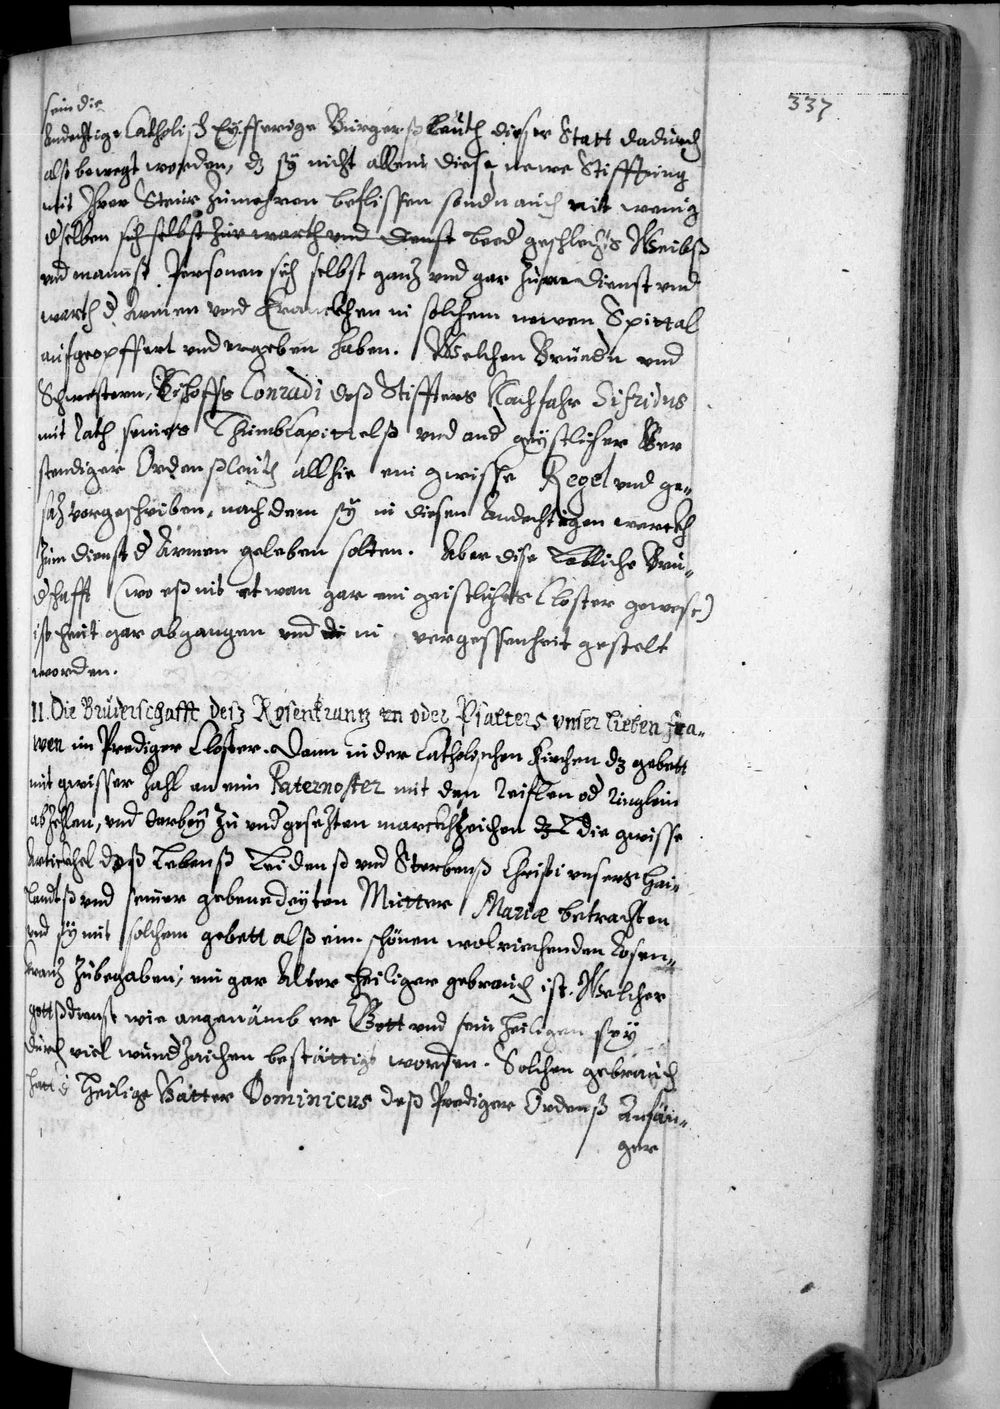 337
sein die
Andechtige Catholisch Eyfferige Burgersleuth dieser Statt dadurch
alß bewegt worden, dz sy nicht allein diese newe Stifftung
mit Ihrer Steur zumehren beflissen sondn auch nit wenig
dselben sich selbst zur warth und Dienst beed geschlechts Weibß
und mannß Personen sich selbst gantz und gar zum dienst und
warth d Armen vnd Kranckhen in solchem newen Spittal
aufgeopffert und ergeben haben. Welchen Bruedn und
Schwestern, Bischoffs Conradi deß Stiffters Nachfahr Sifridus
mit rath seines Thumbcapittelß und and geystlicher Ver
stendiger Ordenßleuth allhie ein gwisse Regel und ge-
satz vorgeschriben, nach dem sy in diesen Andechtigen werckh
zum dienst d Armen geleben solten. Aber dise Lobliche Bru-
dschafft (wo eß nit etwan gar ein geistliches Closter gewest)
ist heut gar abgangen und in vergessenheit gestelt
worden.
II. Die Bruderschafft desz Rosenkrantz en oder Psalters vnser lieben fra-
wen im Prediger Closter. Dann in der Catholischen Kirchen dz gebett
mit gwisser Zahl an eim Paternoster mit den Reiflen od Ringlein
abzehlen, und darbey zu undgesetzten marckhzeichen die gwisse
Artickhel deß Lebenß Leidenß und Sterbenß Christi unsers Hai-
landtß und seiner gebenedeyten Mutter Mariæ betrachten
und sy mit solchem gebett alß eim schönen wolriechenden Rosen-
krantz zubegaben, ein gar Alter heiliger gebrauch ist. Welcher
gottßdienst wie angenämb er Gott und sein heiligen sey
durch viel wundzaichen bestättigt worden. Solchen gebrauch
hatt d Heilige Vatter Dominicus deß Prediger Ordenß Anfän-
ger